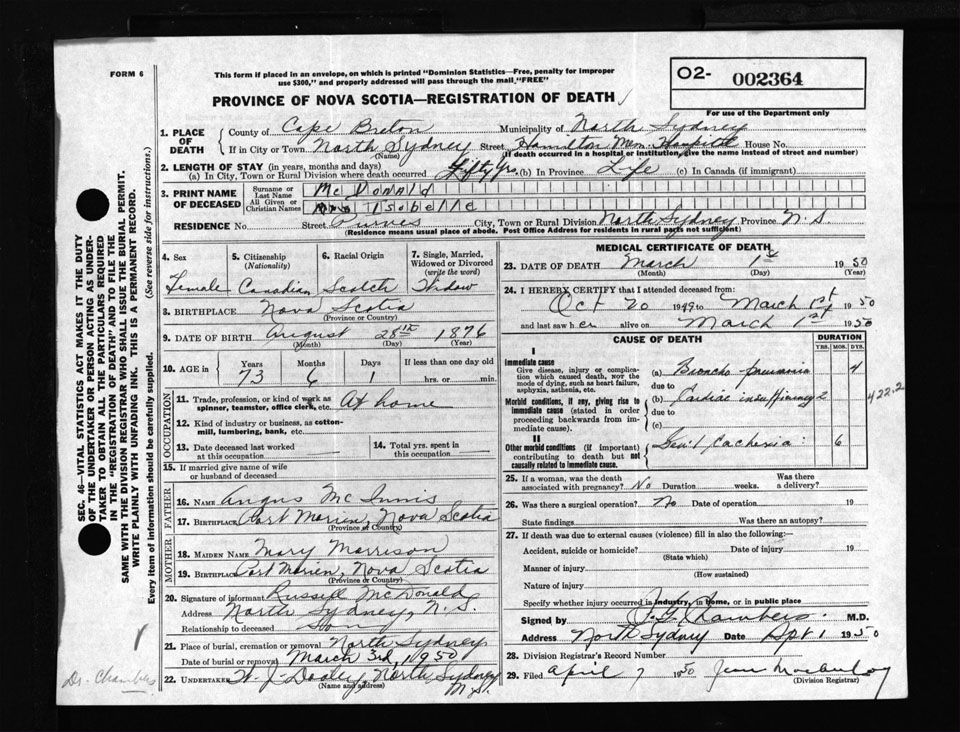 FORM 6
This form if placed in an envelope, on which is printed "Dominion Statistics—Free, penalty for improper
use $300," and properly addressed will pass through the mail "FREE"
O2- 002364
PROVINCE OF NOVA SCOTIA—REGISTRATION OF DEATH
For use of the Department only
1. PLACE OF DEATH
County of Cape Breton Municipality of North Sydney
If in City or Town North Sydney Street Hamilton Mem. Hospital House No.
(Name) (If death occurred in a hospital or institution, give the name instead of street and number)
2. LENGTH OF STAY (in years, months and days)
(a) In City, Town or Rural Division where death occurred Fifty Yrs. (b) In Province Life (c) In Canada (if immigrant)
3. PRINT NAME OF DECEASED
Surname or Last Name McDonald
All Given or Christian Names Isobelle
RESIDENCE No. Street Purves City, Town or Rural Division North Sydney Province N.S.
(Residence means usual place of abode. Post Office Address for residents in rural parts not sufficient)
4. Sex
5. Citizenship (Nationality)
6. Racial Origin
7. Single, Married, Widowed or Divorced (write the word)
Female Canadian Scotch Widow
8. BIRTHPLACE Nova Scotia
(Province or Country)
9. DATE OF BIRTH August 28th 1876
(Month) (Day) (Year)
10. AGE in Years Months Days If less than one day old
73 6 1 hrs. or min.
OCCUPATION
11. Trade, profession or kind of work as
spinner, teamster, office clerk, etc. At home
12. Kind of industry or business, as cotton-
mill, lumbering, bank, etc.
13. Date deceased last worked
at this occupation
14. Total yrs. spent in
this occupation
15. If married give name of wife
or husband of deceased
FATHER
16. NAME Angus McInnis
17. BIRTHPLACE Port Morien, Nova Scotia
(Province or Country)
MOTHER
18. MAIDEN NAME Mary Morrison
19. BIRTHPLACE Port Morien, Nova Scotia
(Province or Country)
20. Signature of informant Russell McDonald
Address North Sydney, N.S.
Relationship to deceased Son
21. Place of burial, cremation or removal North Sydney
Date of burial or removal March 3rd, 1950
22. UNDERTAKER W. J. Dooley, North Sydney
(Name and address) N.S.
MEDICAL CERTIFICATE OF DEATH
23. DATE OF DEATH March 1st 1950
(Month) (Day) (Year)
24. I HEREBY CERTIFY that I attended deceased from:
Oct 20 1949 to March 1st 1950
and last saw her alive on March 1st 1950
CAUSE OF DEATH
DURATION
YRS. MOS. DYS.
I
Immediate cause
Give disease, injury or complica-
tion which caused death, NOT the
mode of dying, such as heart failure,
asphyxia, asthenia, etc.
(a) Broncho pneumonia 4
due to
Morbid conditions, if any, giving rise to
immediate cause (stated in order
proceeding backwards from im-
mediate cause).
(b) Cardiac insufficiency
due to
(c)
422.2
II
Other morbid conditions (if important)
contributing to death but not
causally related to immediate cause.
Senil Cachexia 6
25. If a woman, was the death
associated with pregnancy? No Duration weeks. Was there
a delivery?
26. Was there a surgical operation? No Date of operation 19
State findings Was there an autopsy?
27. If death was due to external causes (violence) fill in also the following:—
Accident, suicide or homicide? Date of injury 19
(State which)
Manner of injury
(How sustained)
Nature of injury
Specify whether injury occurred in industry, in home, or in public place
Signed by Chambers M.D.
Address North Sydney Date Sept 1 1950
28. Division Registrar's Record Number
29. Filed April 7 1950 Jean
(Division Registrar)
SEC. 46—VITAL STATISTICS ACT MAKES IT THE DUTY
OF THE UNDERTAKER OR PERSON ACTING AS UNDER-
TAKER TO OBTAIN ALL THE PARTICULARS REQUIRED
IN THE "REGISTRATION OF DEATH" AND TO FILE THE
SAME WITH THE DIVISION REGISTRAR WHO SHALL ISSUE THE BURIAL PERMIT.
WRITE PLAINLY WITH UNFADING INK. THIS IS A PERMANENT RECORD.
Every item of information should be carefully supplied. (See reverse side for instructions.)
Dr. Chambers